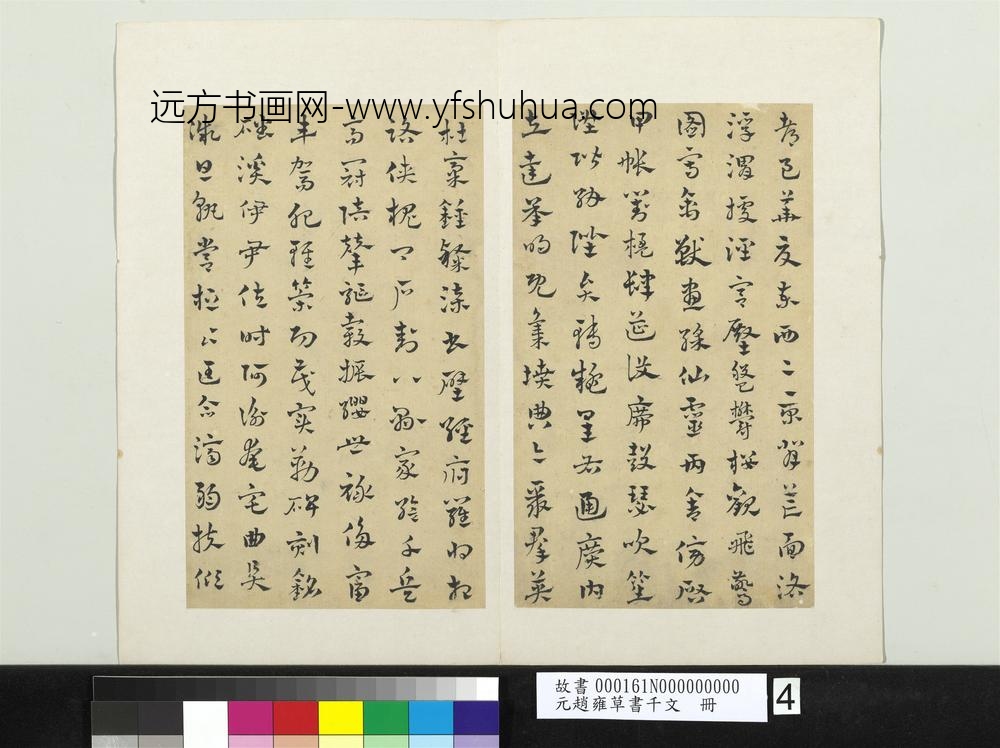 远方书画网-www.yfshuhua.com
都邑華夏東西二京背芒面洛
浮渭據涇宮殿盤鬱樓觀飛驚
圖寫禽獸畫綵仙靈丙舍傍啓
甲帳對楹肆筵設席鼓瑟吹笙
陞階納陛弁轉疑星右通廣內
左達承明既集墳典亦聚群英
杜稾鍾隸漆書壁經府羅將相
路俠槐卿戶封八縣家給千兵
高冠陪輦驅轂振纓世祿侈富
車駕肥輕策功茂實勒碑刻銘
磻溪伊尹佐時阿衡奄宅曲阜
微旦孰營桓公匡合濟弱扶傾
故書 000161N000000000
元趙雍草書千文 冊
4